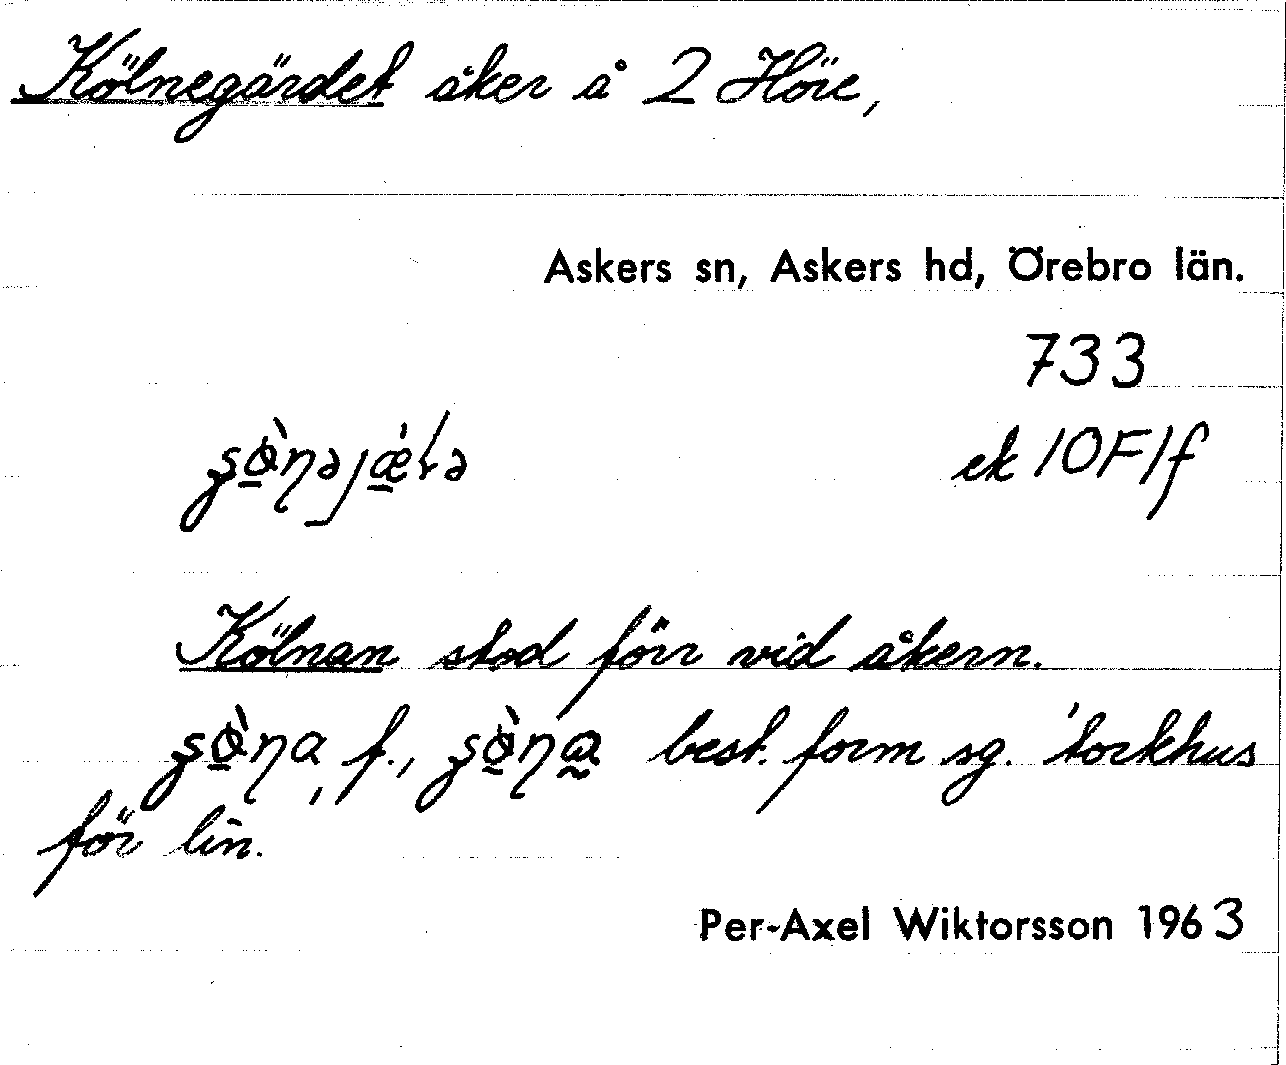 Kölnegärdet åker å 2 Höie,
Askers sn, Askers hd, Örebro län.
733
ek 10F1f
Kölnan stod förr vid åkern.
f., best. form sg. 'torkhus
för lin.
Per-Axel Wiktorsson 1963